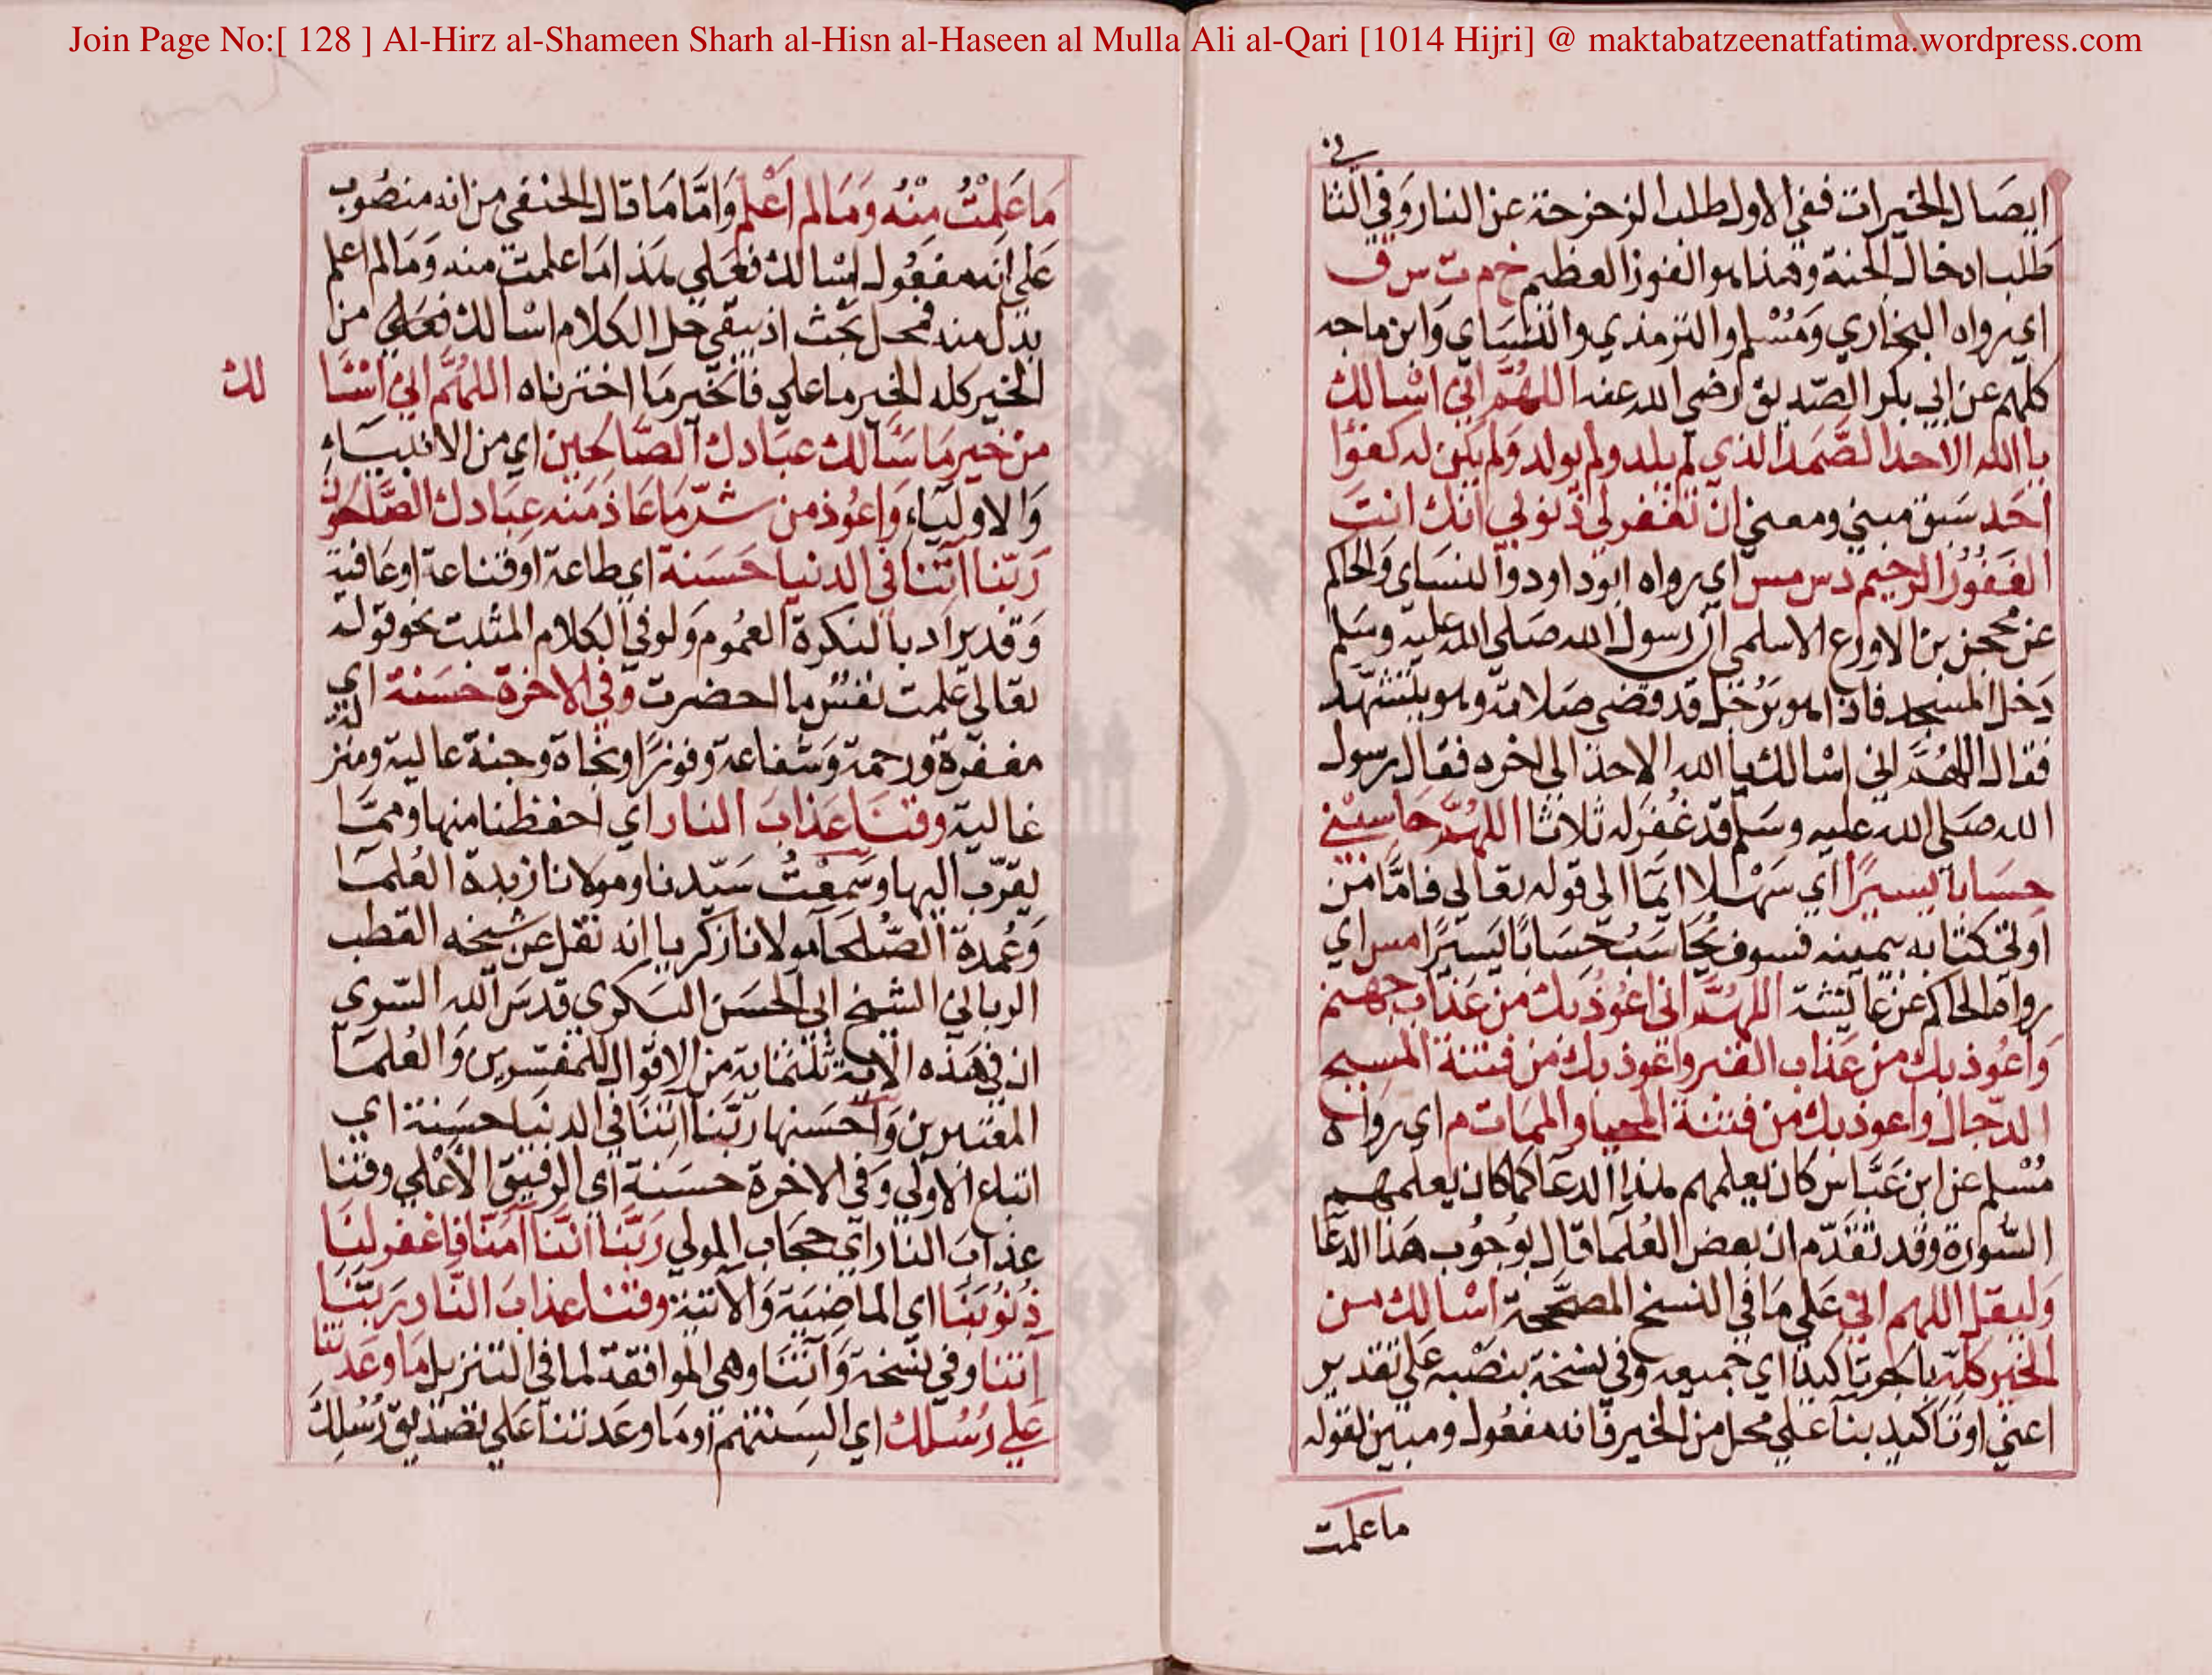 Join Page No:[ 128 ] Al-Hirz al-Shameen Sharh al-Hisn al-Haseen al Mulla Ali al-Qari [1014 Hijri] @ maktabatzeenatfatima.wordpress.com
ايصال الخيرات ففي الاول طلب الزحزحة عن النار وفي الثا
طلب ادخال الجنة وهذا هو الفوز العظيم خ م ت س ق
اي رواه البخاري ومسلم والترمذي والنساي وابن ماجه
كلهم عن ابي بكر الصديق رضي الله عنه اللهم اني اسالك
يا الله الاحد الصمد الذي لم يلد ولم يولد ولم يكن له كفوا
احد سبق مبني ومعني ان تغفر لي ذنوبي انك انت
الغفور الرحيم د س مس اي رواه ابو داود والنساي والحاكم
عن محجن بن الاورع الاسلمي ان رسول الله صلي الله عليه وسلم
دخل المسجد فاذا هو برجل قد قضي صلاته وهو يتشهد
فقال اللهم اني اسالك يا الله الاحد الي اخره فقال رسول
الله صلي الله عليه وسلم قد غفر له ثلاثا اللهم حاسبني
حسابا يسيرا اي سهلا ايما الي قوله تعالي فاما من
اوتي كتابه بيمينه فسوف يحاسب حسابا يسيرا مس اي
رواه الحاكم عن عايشة اللهم اني اعوذ بك من عذاب جهنم
واعوذ بك من عذاب القبر واعوذ بك من فتنة المسيح
الدجال واعوذ بك من فتنة المحيا والممات م اي رواه
مسلم عن ابن عباس كان يعلمهم هذا الدعا كما كان يعلمهم
السورة وقد تقدم ان بعض العلما قال بوجوب هذا الدعا
وليقل اللهم اني علي ما في النسخ المصححة اسالك من
الخير كله بالجر تاكيدا اي جميعه وفي نسخة بنصبه علي تقدير
اعني او تاكيد بنا علي محل من الخير فانه مفعول ومبين لقوله
ما علمت
ما علمت منه وما لم اعلم واما ما قال الحنفي من انه منصوب
علي انه مفعول اسالك فعلي هذا ما علمت منه وما لم اعلم
بدل منه فمحل بحث اذ يبقي حل الكلام اسالك فعلي من
الخير كله الخير ما علي فالخير ما اخترناه اللهم اني اسا
لك
من خير ما سالك عبادك الصالحين اي من الانبياء
والاولياء واعوذ من شر ما عاذ منه عبادك الصالحون
ربنا اتنا في الدنيا حسنة اي طاعة او قناعة او عافية
وقد يراد بالنكرة العموم ولو في الكلام المثبت نحو قوله
تعالي علمت نفس ما احضرت وفي الاخرة حسنة اي
مغفرة ورحمة وشفاعة وفوزا ونجاة وجنة عالية ومنز
لة
غالية وقنا عذاب النار اي احفظنا منها ومما
يقرب اليها وسمعت سيدنا ومولانا زبدة العلما
وعمدة الصلحا مولانا زكريا انه نقل عن شيخه القطب
الرباني الشيخ ابي الحسن البكري قدس الله السري
ان في هذه الاية ثلثماية من الاقوال للمفسرين والعلما
المعتبرين واحسنها ربنا اتنا في الدنيا حسنة اي
اتباع الاولي وفي الاخرة حسنة اي الرفيق الاعلي وقنا
عذاب النار اي حجاب المولي ربنا اننا آمنا فاغفر لنا
ذنوبنا اي الماضية والآتية وقنا عذاب النار ربنا
آتنا وفي نسخة وآتنا وهي الموافقة لما في التنزيل ما وعدتنا
علي رسلك اي السنتهم او ما وعدتنا علي تصديق رسلك